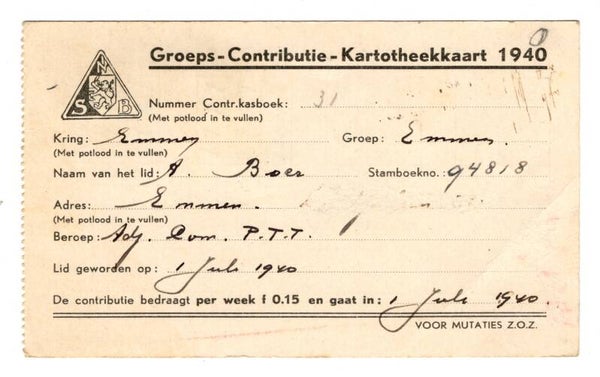 Groeps-Contributie-Kartotheekkaart 1940
0
N
S B
Nummer Contr.kasboek: 31
(Met potlood in te vullen)
Kring: Emmen Groep: Emmen.
(Met potlood in te vullen)
Naam van het lid: A. Boer Stamboekno.: 94818
Adres: Emmen.
(Met potlood in te vullen)
Beroep: Adj. Com. P.T.T.
Lid geworden op: 1 Juli 1940
De contributie bedraagt per week f 0.15 en gaat in: 1 Juli 1940.
VOOR MUTATIES Z.O.Z.